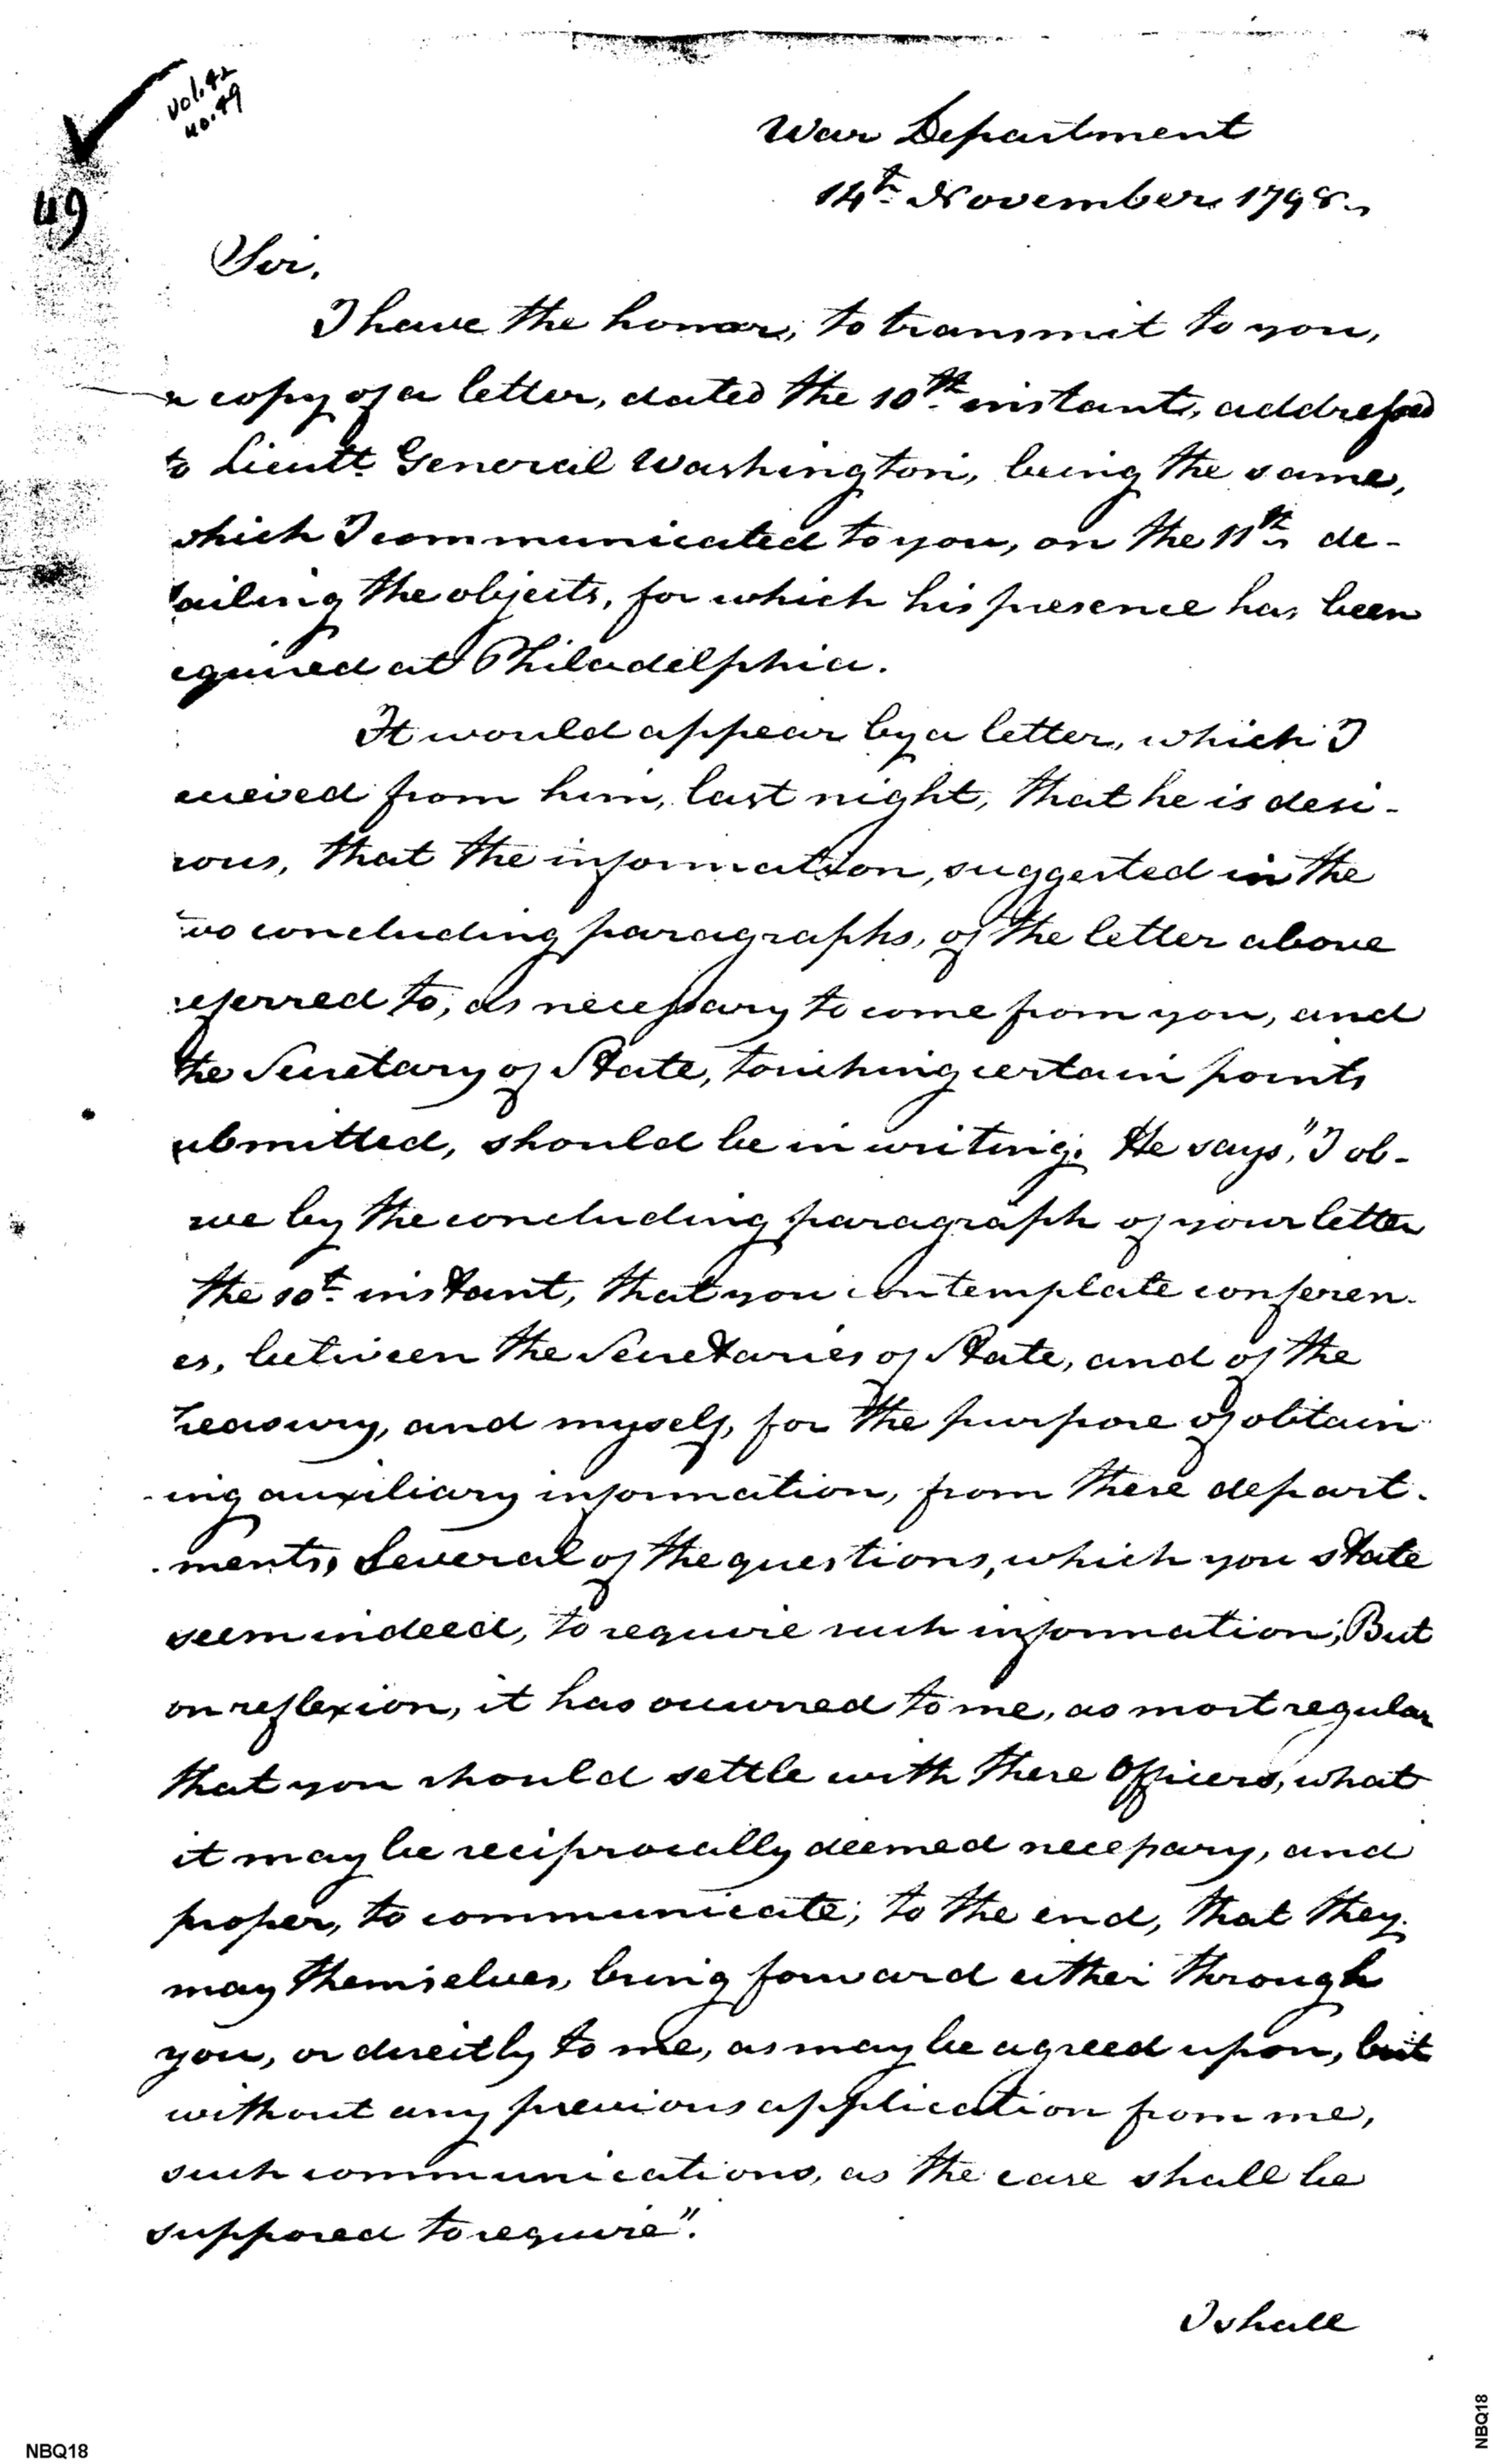 vol. 42
no. 49
49
War Department
14th November 1798
Sir,
I have the honor, to transmit to you,
a copy of a letter, dated the 10th instant, addressed
to Lieutt General Washington, being the same,
which I communicated to you, on the 11th de-
tailing the objects, for which his presence has been
equired at Philadelphia.
It would appear by a letter, which I
eceived from him, last night, that he is desi-
rous, that the information, suggested in the
wo concluding paragraphs, of the letter above
referred to, as necessary to come from you, and
the Secretary of State, touching certain points
ubmitted, should be in writing. He says, "I ob-
rve by the concluding paragraph of your letter
the 10t instant, that you contemplate conferen-
es, between the Secretaries of State, and of the
reasury, and myself, for the purpose of obtain
-ing auxiliary information, from these depart-
-ments, Several of the questions, which you state
seem indeed, to require such information; But
on reflexion, it has occurred to me, as most regular
that you should settle with these Officers, what
it may be reciprocally deemed necessary, and
proper, to communicate; to the end, that they
may themselves, bring forward either through
you, or directly to me, as may be agreed upon, but
without any previous application from me,
such communications, as the case shall be
supposed to require".
I shall
NBQ18
NBQ18